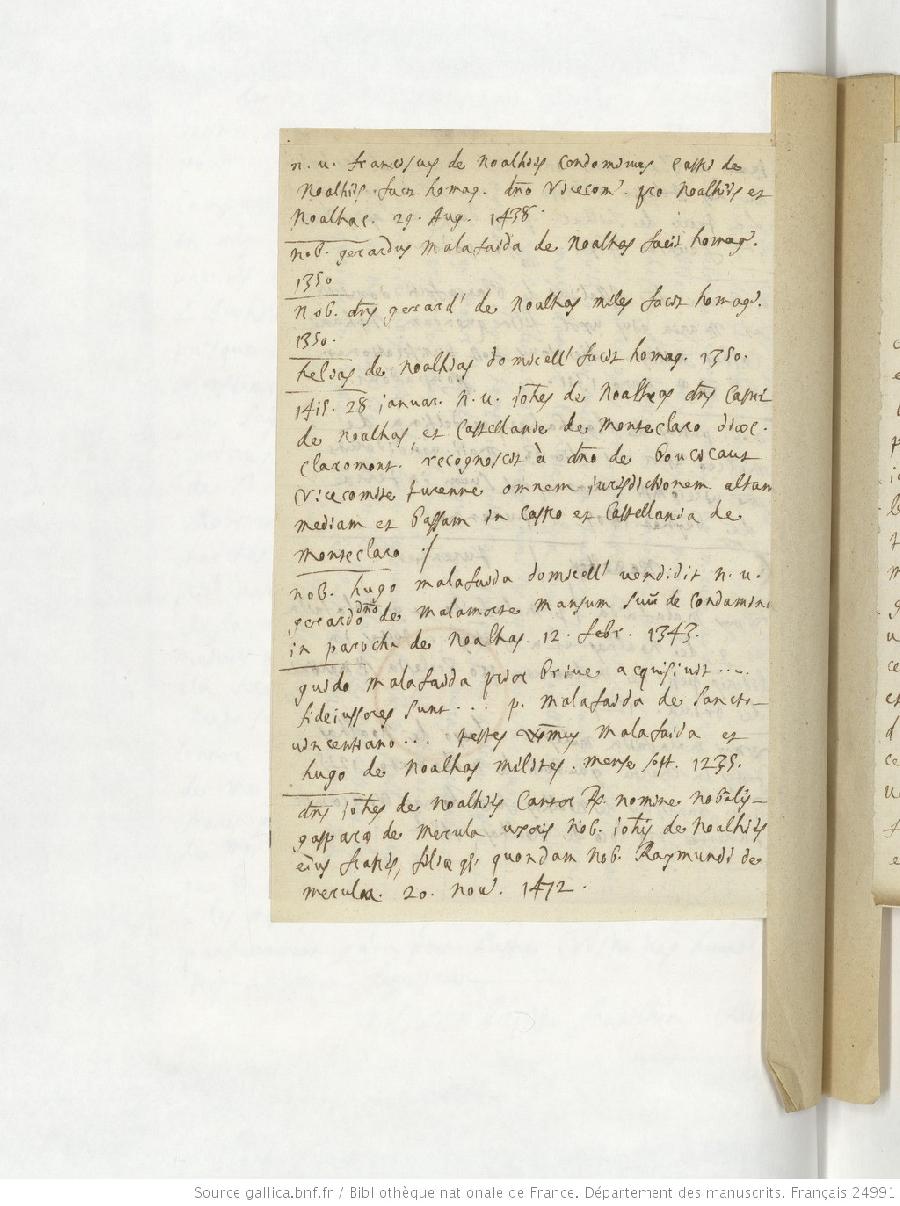 n. u. franciscus de Noalhiis condominus castri de
Noalhiis facit homag. dno Vicecom. pro Noalhiis et
Noalhac. 29. Aug. 1438.
nob. gerardus malafaida de Noalhas facit homag.
1350
Nob. dns gerard' de Noalhas miles facit homag.
1350.
helias de Noalhas domicell' facit homag. 1350.
1415. 28 januar. n. u. johes de Noalhas dns Castri
de Noalhas, et Castellanie de monteclaro dioc.
claromont. recognoscit à dno de boucicaut
vicecomite turenne omnem jurisdictionem altam
mediam et bassam in castro et Castellania de
monteclaro :/
nob. hugo malafaida domicell' vendidit n. u.
gerardo dno de malamorte mansum suū de Condamin
in parochia de Noalhas. 12. febr. 1343.
guido malafaida prior brive acquisivit ....
fideiussores sunt ... p. malafaida de sancto
vincentiano ... testes malafaida et
hugo de Noalhas milites. mense sept. 1235.
dns johes de Noalhiis Cantor nomine nobilis
gasparae de mercula uxoris nob. johis de Noalhiis
eius fratris, filiae quondam nob. Raymundi de
mercula. 20. nov. 1472.
Source gallica.bnf.fr / Bibliothèque nationale de France. Département des manuscrits. Français 24991